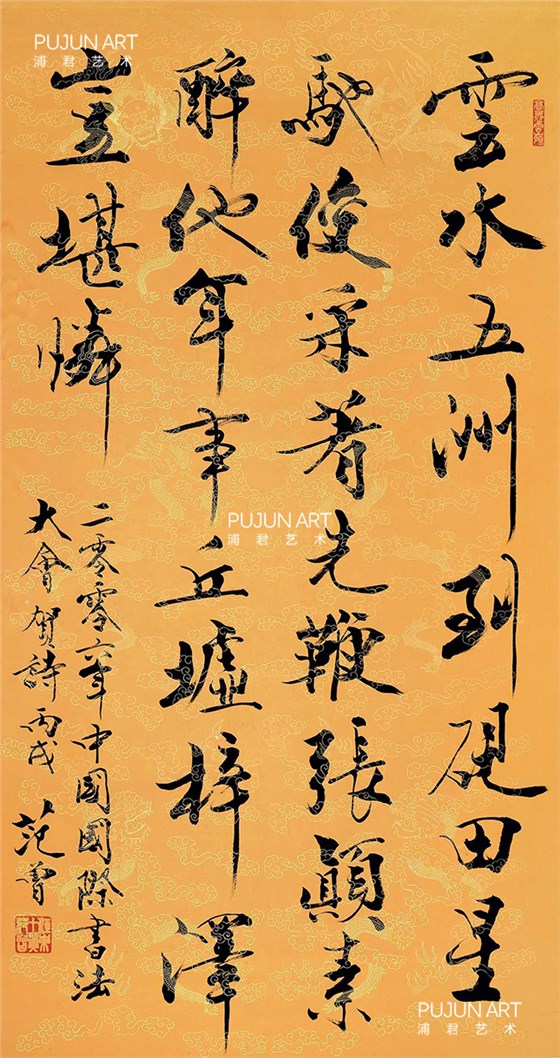 雲水五洲到硯田星
馳使采着先鞭張顛素
醉他年事丘墟梓澤
豈堪憐
二零零六年中国國際書法
大會贺詩 丙戌 范曾
PUJUN ART
浦君艺术
PUJUN ART
浦君艺术
PUJUN ART
浦君艺术